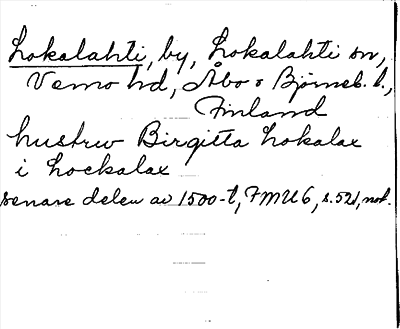 Lokalahti, by, Lokalahti sn,
Vemo hd, Åbo o Björneb. l.,
Finland
hustru Birgitta Lokalax
i Lockalax
senare delen av 1500-t, FMU 6, s. 521, not.